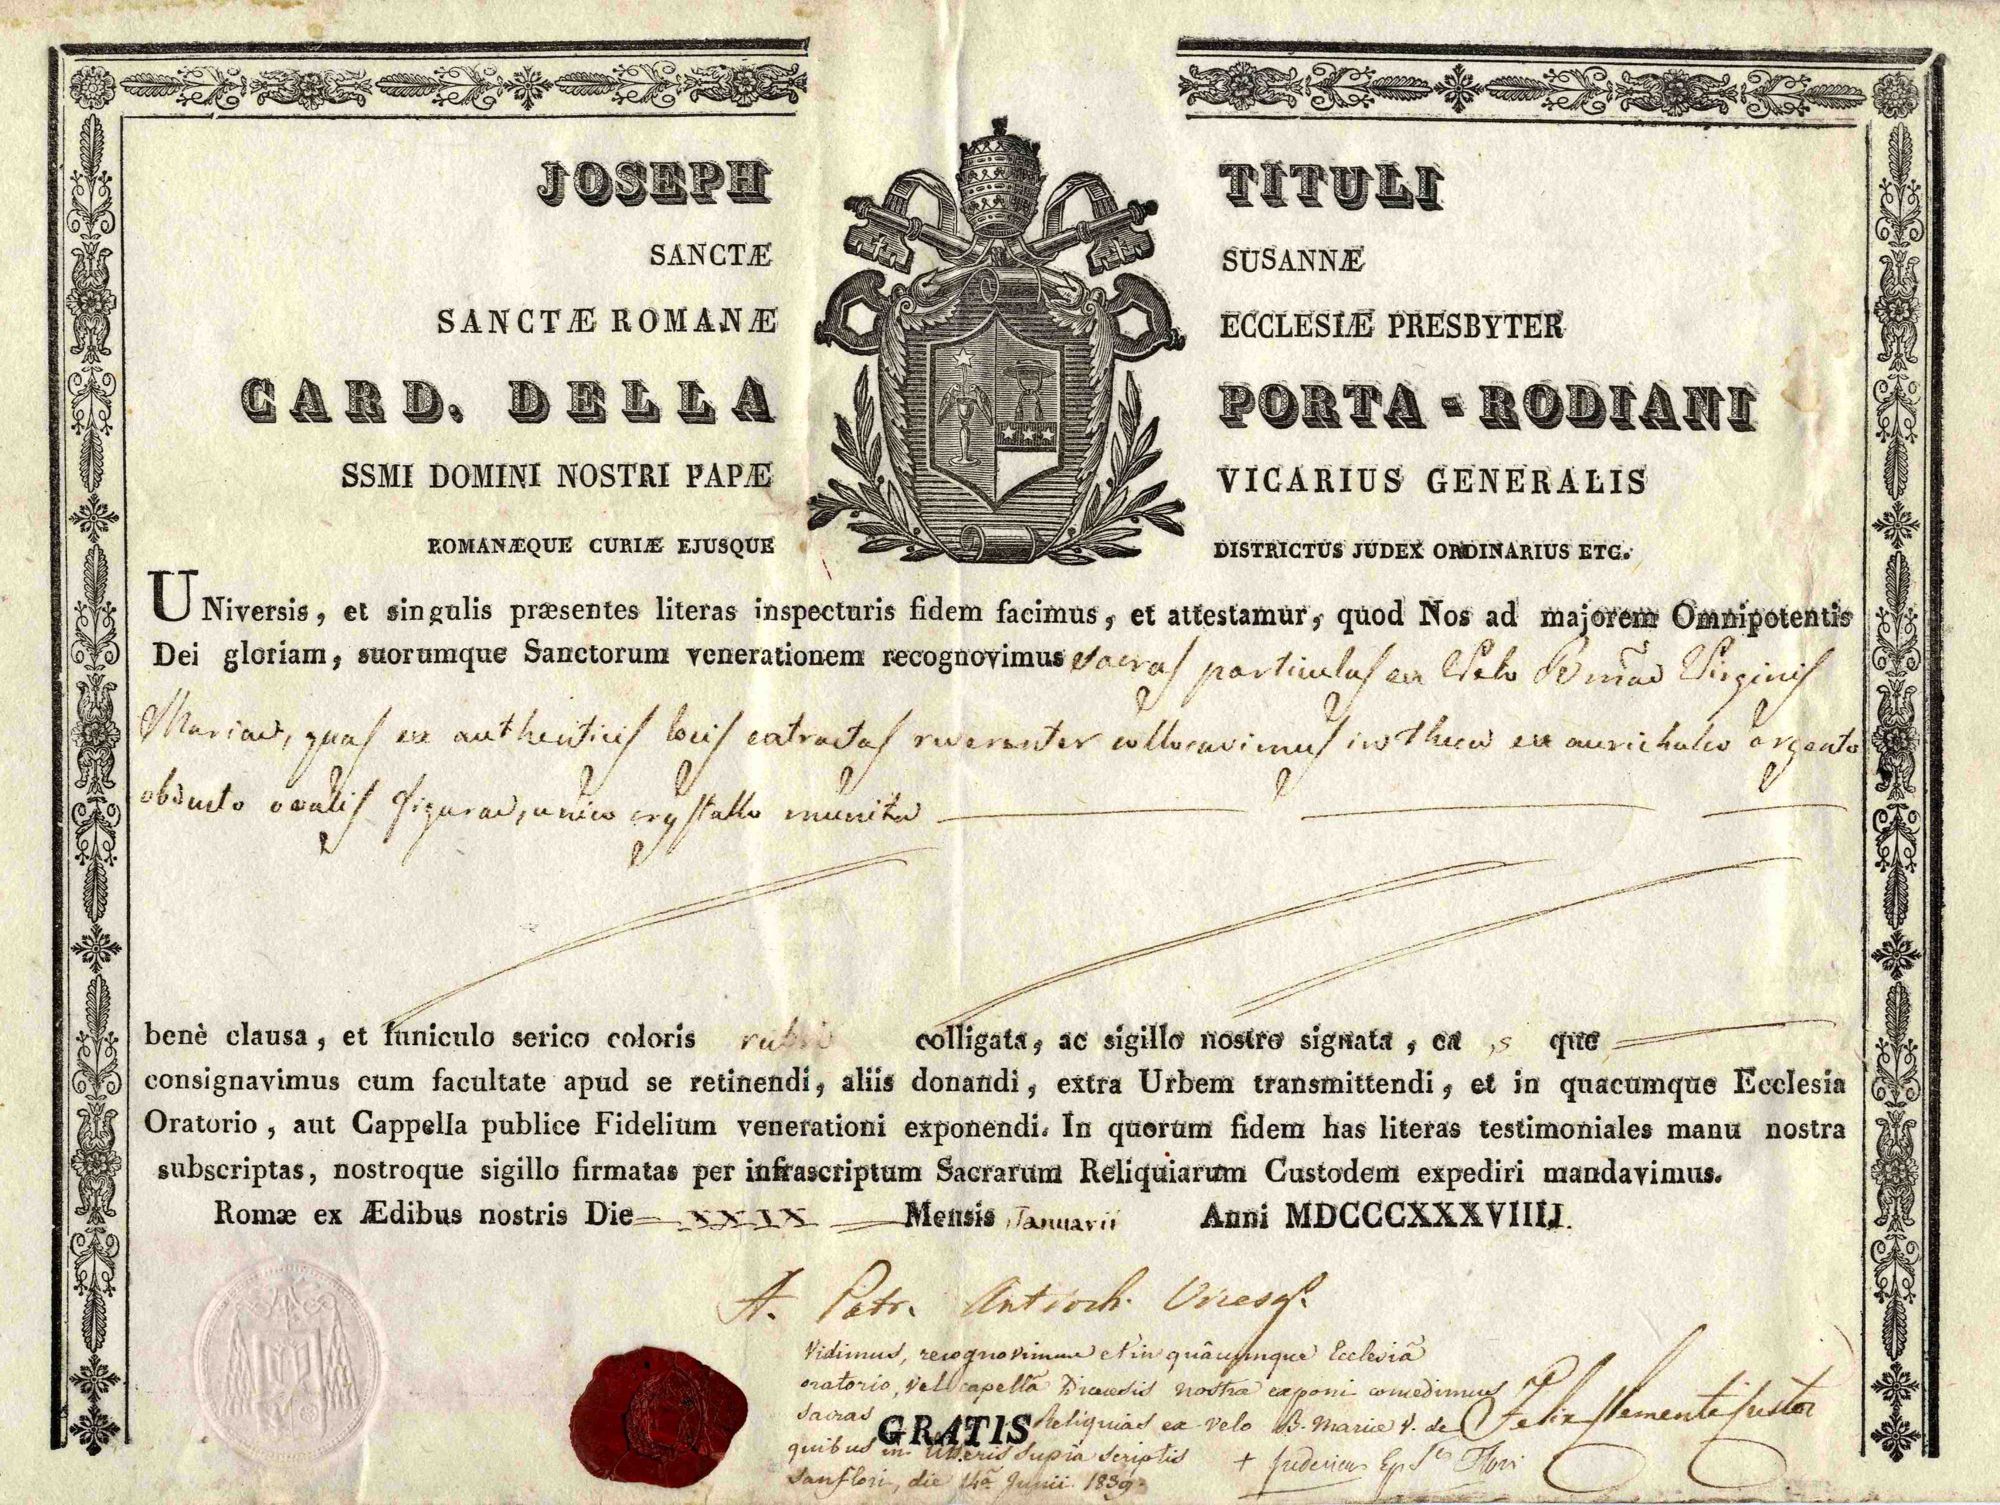 JOSEPH TITULI
SANCTÆ SUSANNÆ
SANCTÆ ROMANÆ ECCLESIÆ PRESBYTER
CARD. DELLA PORTA-RODIANI
SSMI DOMINI NOSTRI PAPÆ VICARIUS GENERALIS
ROMANÆQUE CURIÆ EJUSQUE DISTRICTUS JUDEX ORDINARIUS ETC.
UNiversis, et singulis præsentes literas inspecturis fidem facimus, et attestamur, quod Nos ad majorem Omnipotentis
Dei gloriam, suorumque Sanctorum venerationem recognovimus sacras particulas ex Velo Bmae Virginis
Mariae, quas ex authenticis locis extractas reverenter collocavimus in theca ex aurichalco argento
obducto ovalis figurae, unico crystallo munita
benè clausa, et funiculo serico coloris rubri colligata, ac sigillo nostro signata, ea,s que
consignavimus cum facultate apud se retinendi, aliis donandi, extra Urbem transmittendi, et in quacumque Ecclesia
Oratorio, aut Cappella publice Fidelium venerationi exponendi. In quorum fidem has literas testimoniales manu nostra
subscriptas, nostroque sigillo firmatas per infrascriptum Sacrarum Reliquiarum Custodem expediri mandavimus.
Romæ ex Ædibus nostris Die XXIX Mensis Januarii Anni MDCCCXXXVIIII.
A. Patr. Antioch. Vicesg.
Vidimus, recognovimus et in quâcumque Ecclesiâ
oratorio, vel capellâ Dioecesis nostrae exponi concedimus
sacras Reliquias ex velo B. Mariae V. de
GRATIS
quibus in litteris supra scriptis
Sanflori, die 14a Junii 1839.
+ fredericus Ep. Sti Flori
Felix Clementi Custos